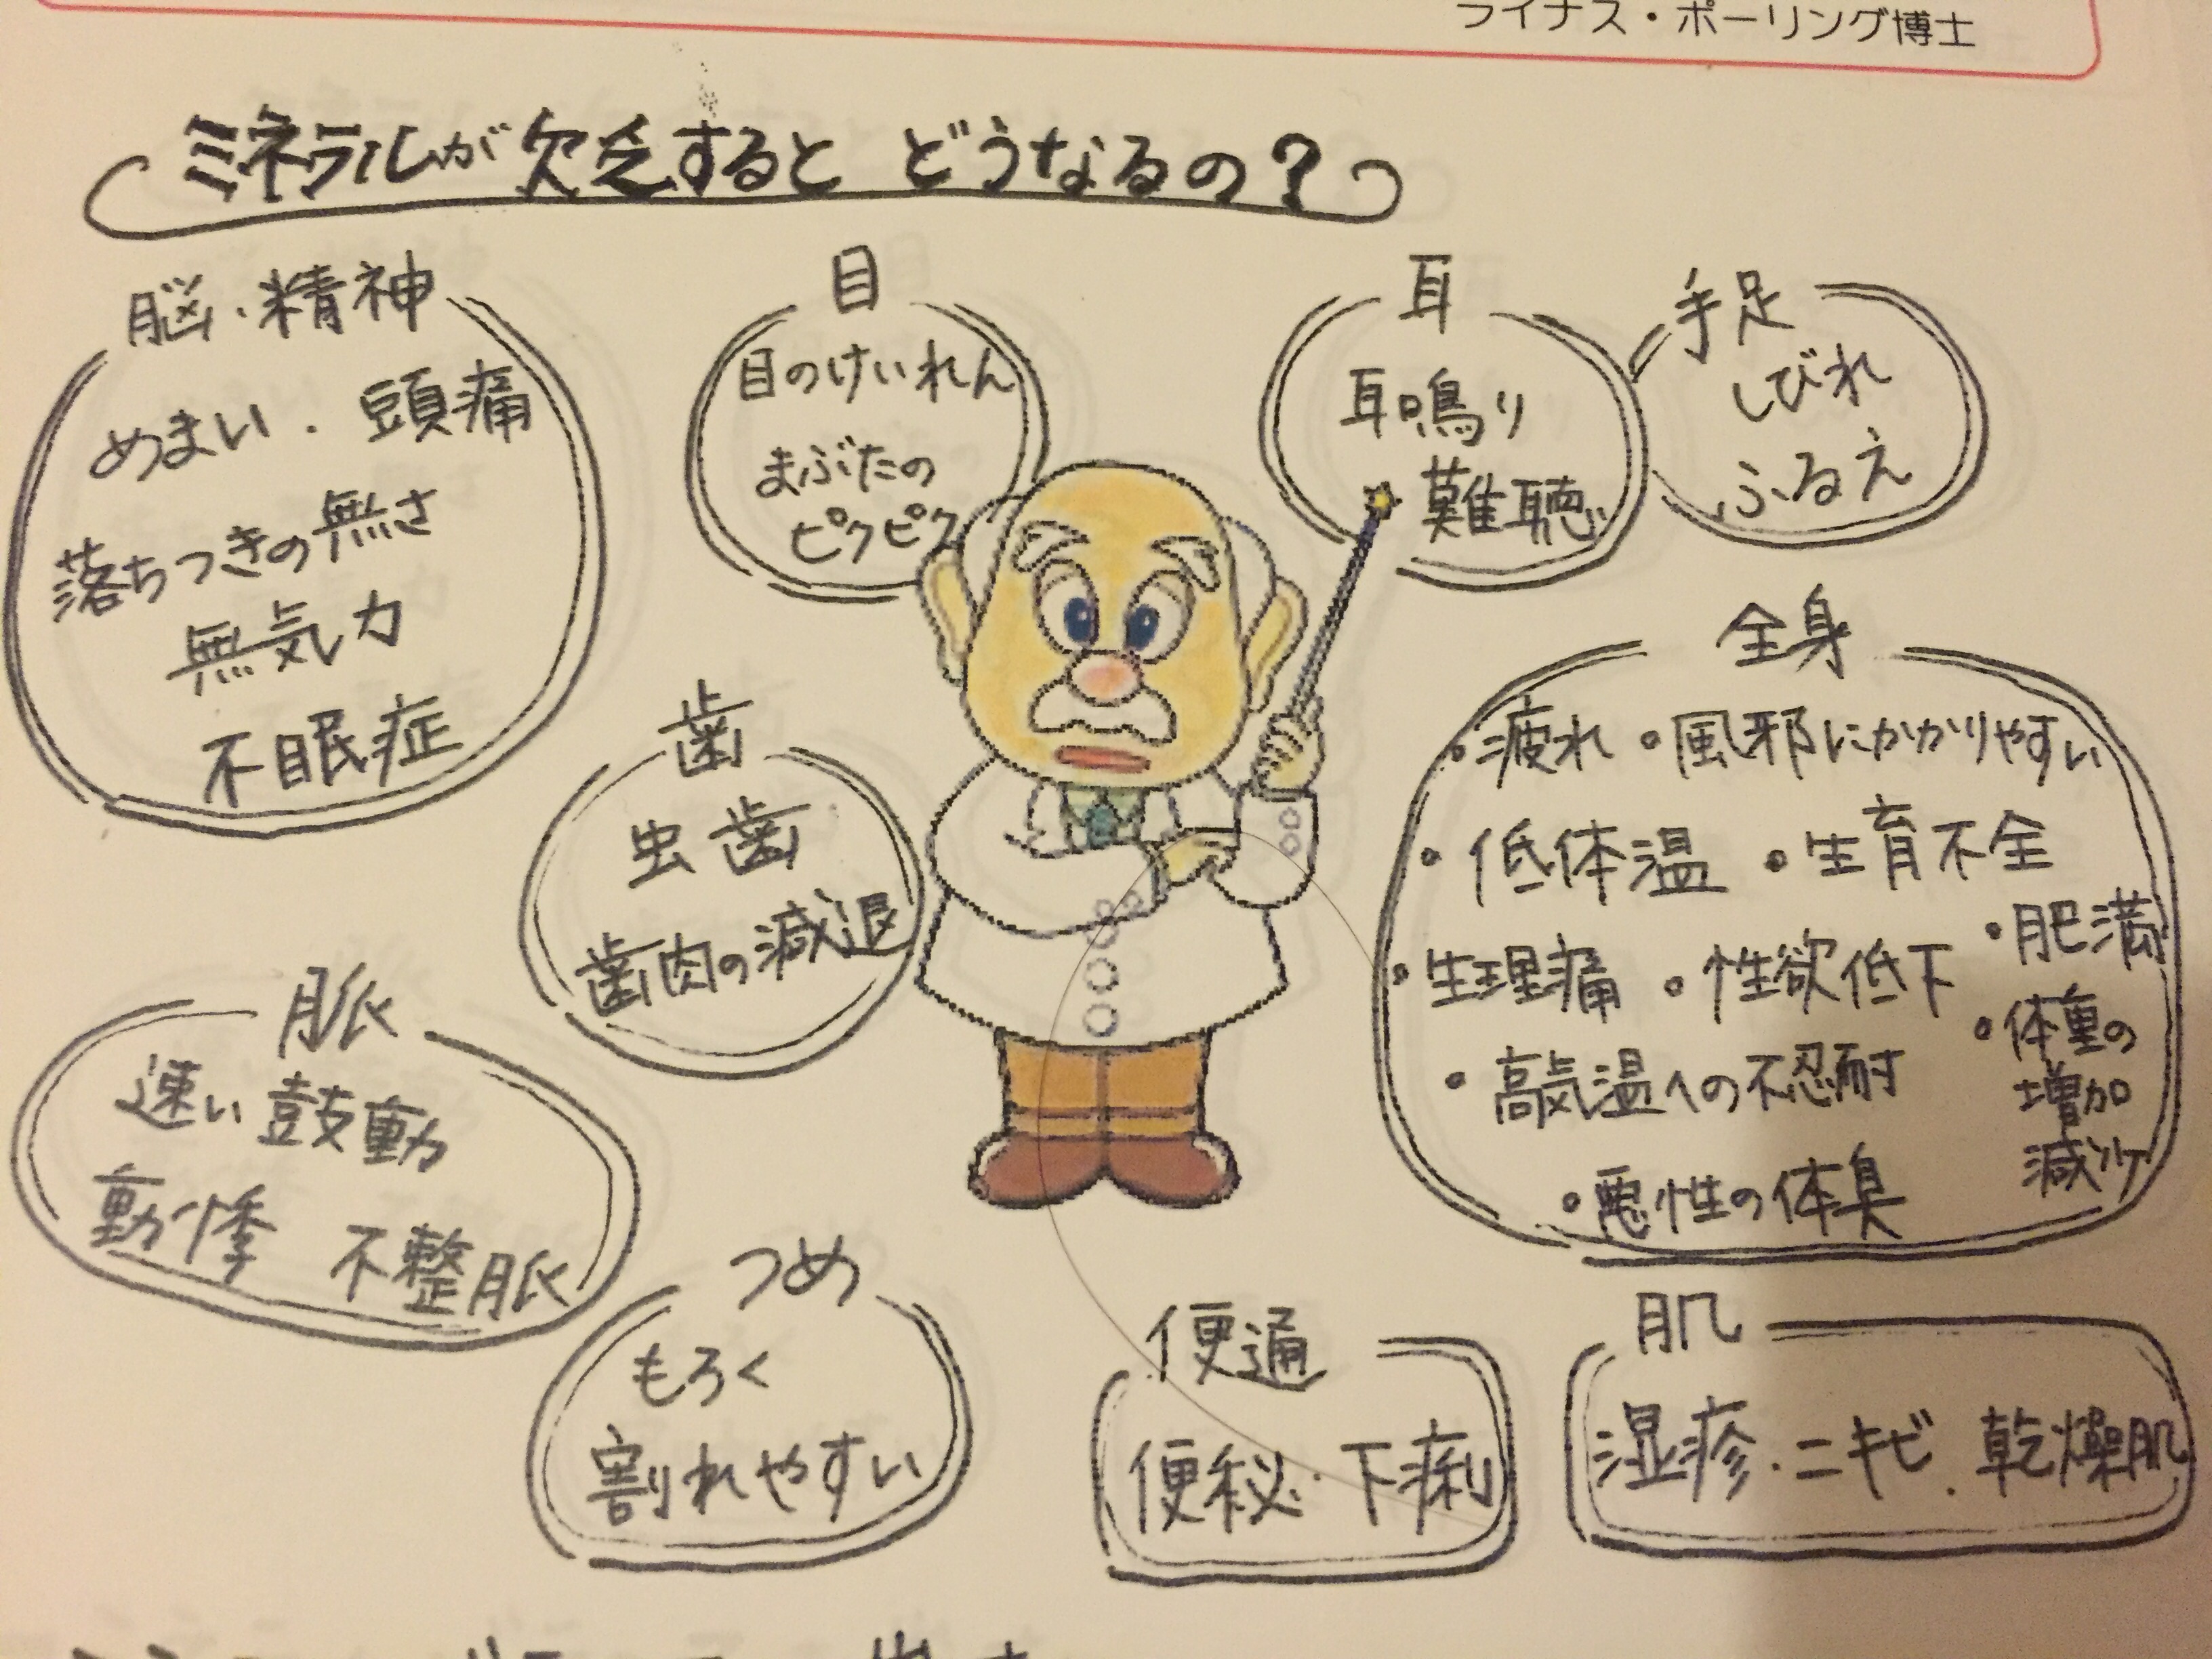 ライナス・ポーリング博士
ミネラルが欠乏すると どうなるの?
脳・精神
めまい・頭痛
落ちつきの無さ
無気力
不眠症
目
目のけいれん
まぶたの
ピクピク
耳
耳鳴り
難聴
手足
しびれ
ふるえ
歯
虫歯
歯肉の減退
全身
・疲れ ・風邪にかかりやすい
・低体温 ・生育不全
・生理痛 ・性欲低下 ・肥満
・高気温への不忍耐
・体重の
増加
減少
・悪性の体臭
脈
速い鼓動
動悸 不整脈
つめ
もろく
割れやすい
便通
便秘・下痢
肌
湿疹・ニキビ・乾燥肌